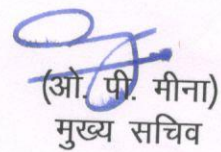 (ओ. पी. मीना)
मुख्य सचिव